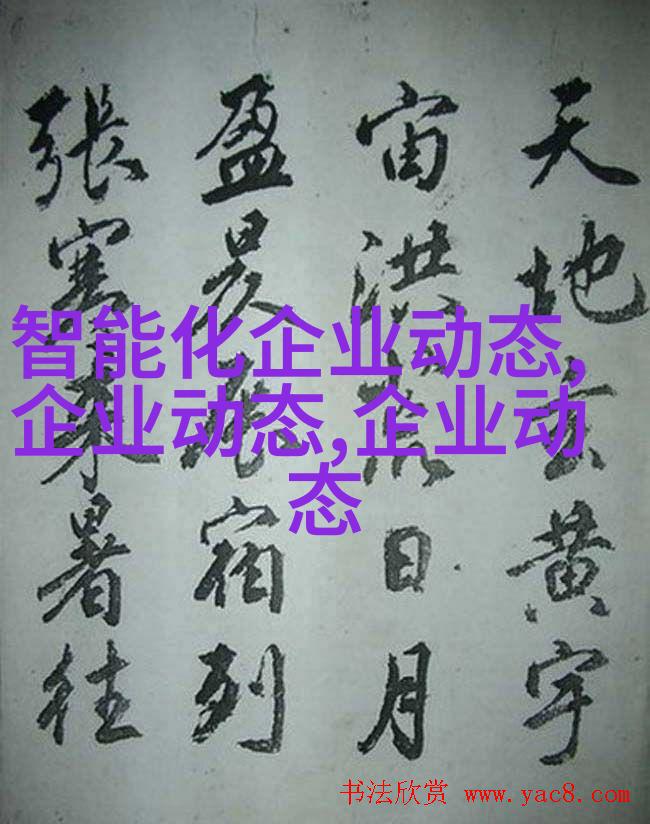 天地玄黄宇
宙洪荒日月
盈昃辰宿列
張寒来暑往
智能化企业动态,
企业动态,企业动
态
书法欣赏 www.yac8.com